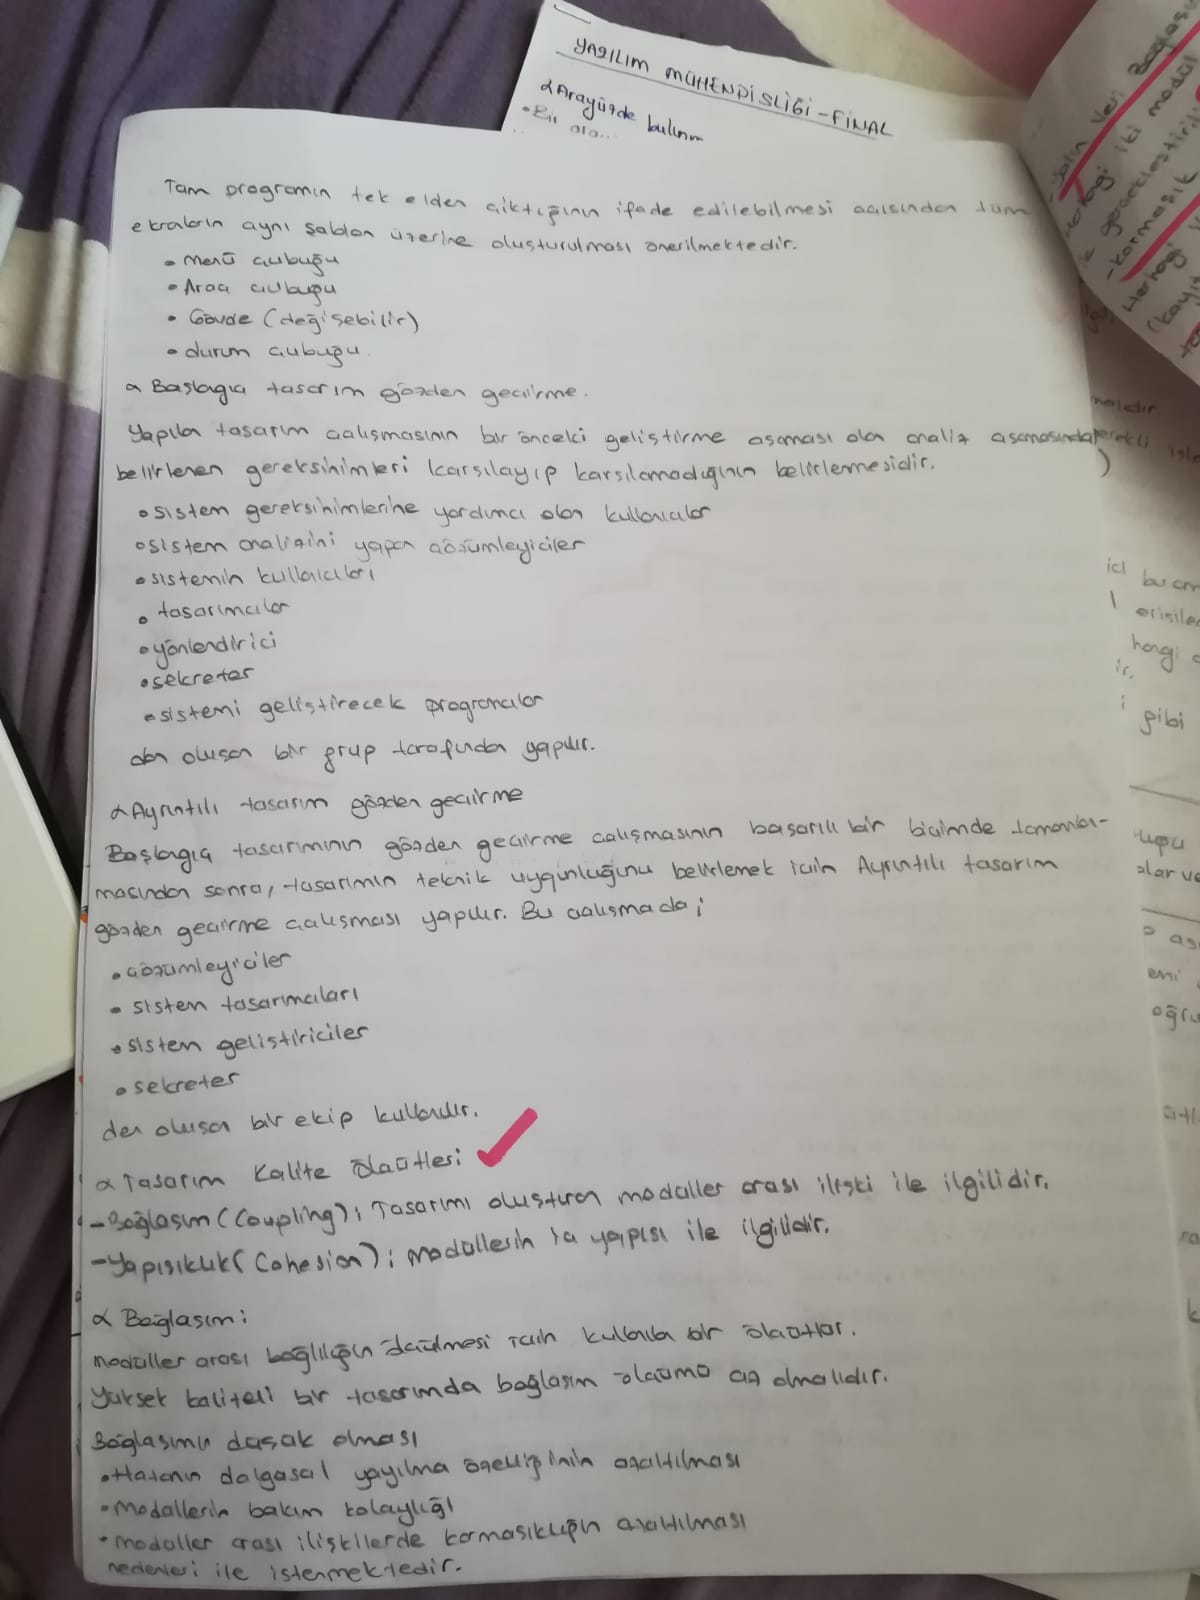 YAZILIM MÜHENDİSLİĞİ-FİNAL
α Arayüzde bulunm
Tüm programın tek elden çıktığının ifade edilebilmesi açısından tüm
ekranların aynı şablon üzerine oluşturulması önerilmektedir.
• Menü çubuğu
• Araç çubuğu
• Gövde (değişebilir)
• durum çubuğu
α Başlangıç tasarım gözden geçirme.
Yapılan tasarım çalışmasının bir önceki geliştirme aşaması olan analiz aşamasında
belirlenen gereksinimleri karşılayıp karşılamadığının belirlenmesidir.
• sistem gereksinimlerine yardımcı olan kullanıcılar
• sistem analizini yapan çözümleyiciler
• sistemin kullanıcıları
• tasarımcılar
• yönlendirici
• sekreter
• sistemi geliştirecek programcılar
dan oluşan bir grup tarafından yapılır.
α Ayrıntılı tasarım gözden geçirme
Başlangıç tasarımının gözden geçirme çalışmasının başarılı bir biçimde tamamlan-
masından sonra, tasarımın teknik uygunluğunu belirlemek için Ayrıntılı tasarım
gözden geçirme çalışması yapılır. Bu çalışmada;
• çözümleyiciler
• sistem tasarımcıları
• sistem geliştiriciler
• sekreter
den oluşan bir ekip kullanılır.
α Tasarım Kalite Ölçütleri
- Bağlaşım (Coupling); Tasarımı oluşturan modüller arası ilişki ile ilgilidir.
- Yapışıklık (Cohesion); modüllerin iç yapısı ile ilgilidir.
α Bağlaşım:
Modüller arası bağlılığın ölçülmesi için kullanılan bir ölçüttür.
Yüksek kaliteli bir tasarımda bağlaşım ölçümü az olmalıdır.
Bağlaşımın düşük olması
• Hatanın dalgasal yayılma özelliğinin azaltılması
• Modüllerin bakım kolaylığı
• modüller arası ilişkilerde karmaşıklığın azaltılması
nedenleri ile istenmektedir.